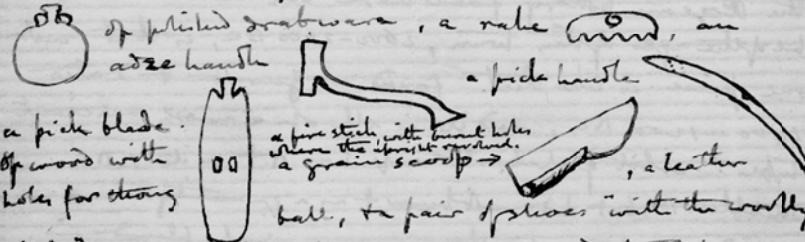 of polished drabware, a rake, an
adze handle
a pick handle
a pick blade.
of wood with
holes for thong
a fire stick with burnt holes
where the upright revolved.
a grain scoop →
, a leather
ball, & a pair of shoes "with the woolly